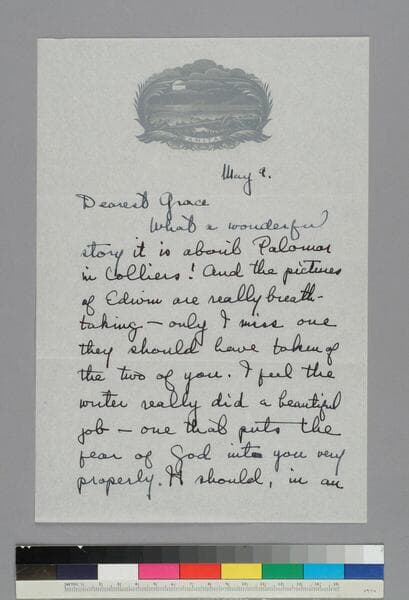 May 9.
Dearest Grace
What a wonderful
story it is about Palomar
in Colliers! And the pictures
of Edwin are really breath-
taking — only I miss one
they should have taken of
the two of you. I feel the
writer really did a beautiful
job — one that puts the
fear of God into you very
properly. It should, in an